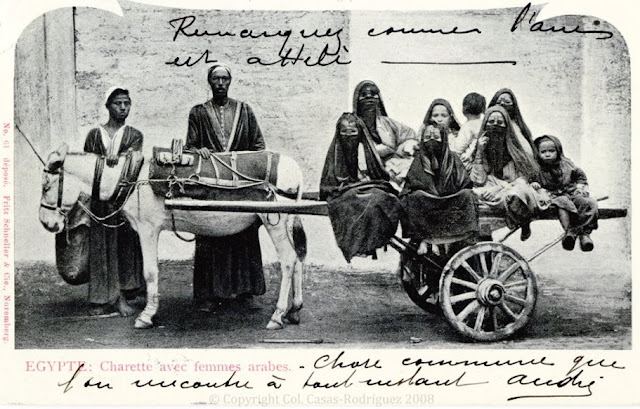 Remarquez comme l'ane
est attelé
No. 61 déposé. Fritz Schneller & Cie., Nuremberg.
EGYPTE: Charette avec femmes arabes. - Chose commune que
l'on rencontre à tout instant André
© Copyright Col. Casas-Rodríguez 2008